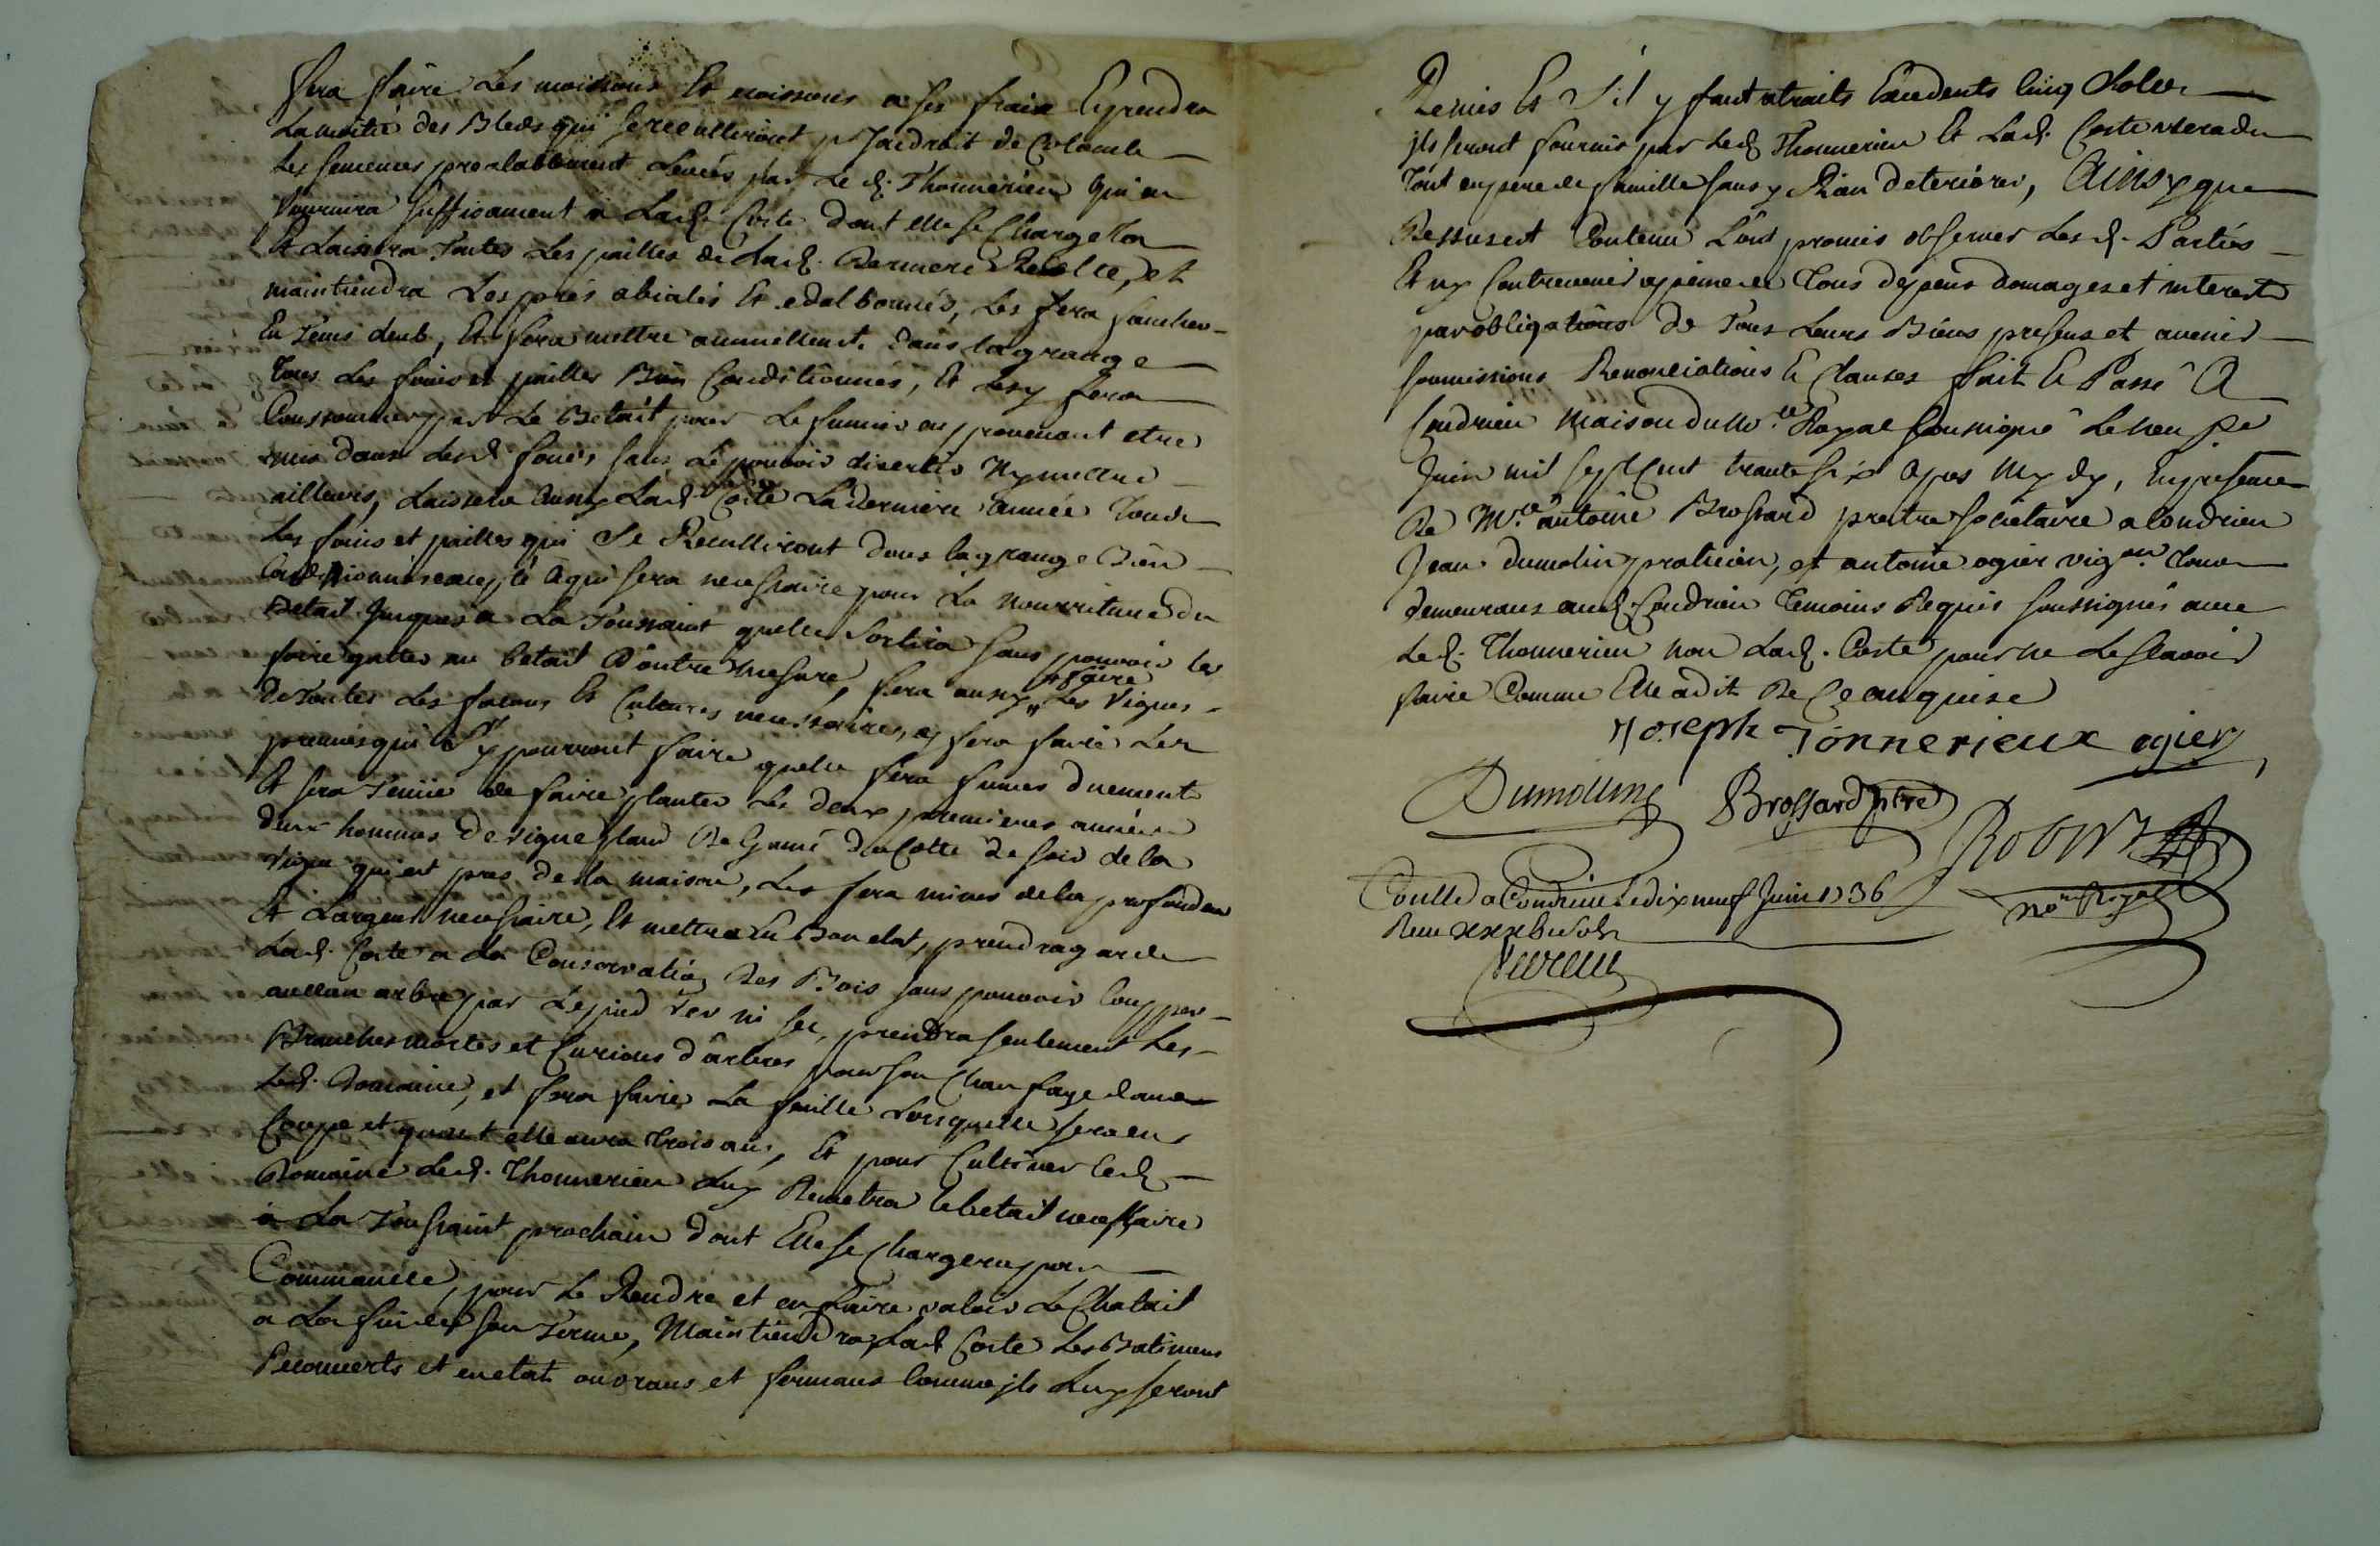 fera faire Les moissons Et noissons a ses fraix Et prendra
La moitié des Bleds qui se recullieront p. Jardroit de Colomb
Les semences prealablement Levées par Le d. Thonnerieu qui en
fournira suffisament a Lad. Coste dont elle se Chargera
Et Laissera Toutes Les pailles de Lad. Derniere Recolte, et
maintiendra Les prés abialés Et edalbonnés, Les fera faucher
En Tems deub, Et fera mettre annuellement dans la grange
Tous Les foins et pailles Bien Conditionnés, Et Les y fera
Consommer par Le Betail pour Le fumier en provenant etre
mis dans Lesd. fonds sans Le pouvoir divertir Ny mettre
ailleurs, Laissera aussy Lad. Coste La derniere année Tous
Les foins et pailles qui Se Recullieront dans la grange Bien
Conditionnés excepté Ce qui sera necessaire pour La nourriture du
Betail Jusques a La Toussaint quelle Sortira sans pouvoir les
faire gatter au betail D'outre mesure, fera aussy faire Les Vignes
de Toutes Les facons Et Cultures necessaires, y fera faire Les
premies qui S'y pourront faire quelle fera fumer duement
Et sera Tenüe de faire planter Les deux premieres années
deux hommes de vigne plant De du Cotté de soir de la
vigne qui est pres de la maison, Les fera miner de la profondeur
Et Largeur necessaire, Et mettre En Bon etat, prendra garde
Lad. Coste a La Conservation Des Bois sans pouvoir Coupper
aucun arbre par Le pied Ver ni sec, prendra seulement Les
Branches mortes et Curions d'arbres pour son Chauffage dans
Led. Domaine, et fera faire La feuille Lorsquelle sera en
Coupe et quant elle aura Trois ans, Et pour Cultiver led.
Domaine Led. Thonnerieu Luy Remetra le betail necessaire
a La Toussaint prochain dont Elle se Chargera par
Commande, pour Le Rendre et en faire valoir Le Chatail
a La fin de son Terme, Maintiendra Lad. Coste Les Batimens
Recouverts et en etat ouvrans et fermans Comme jls Luy seront
Remis Et S'il y faut atraits Excedents Cinq Solz
jls seront fournis par Led. Thonnerieu Et Lad. Coste usera du
Tout en pere de famille sans y Rien deteriorer, Ainsy que
Dessus est Contenu L'ont promis observer Lesd. Parties
Et n'y Contrevenir a peine de Tous depens domages et interest
par obligations de Tous Leurs Biens presens et avenir
soumissions Renonciations & Clauses fait & Passé A
Condrieu Maison du No.re Royal soussigné Le
Juin mil sept Cent trante six apres Mydy, En presence
De M.re antoine Brossard pretre societaire a Condrieu
Jean dumolin praticien, et antoine ogier vig.on Tous
demeurans aud. Condrieu Temoins Requis soussignés avec
Led. Thonnerieu non Lad. Coste pour ne Le sçavoir
faire Comme Elle a dit De Ce enquise
Joseph Tonnerieux ogier
Dumolin Brossard ptre
Robin
Conllé a Condrieu Le dix neuf Juin 1736 no.re Royal
Receu Solz